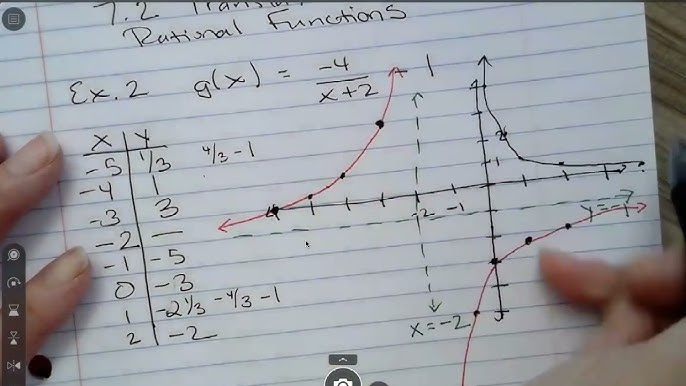 7.2
Rational Functions
Ex. 2 g(x) = -4/(x+2) - 1
x | y
-5 | 1/3 4/3 - 1
-4 | 1
-3 | 3
-2 | —
-1 | -5
0 | -3
1 | -2 1/3 -4/3 - 1
2 | -2
4
2
1
-2 -1
y = -1
x = -2